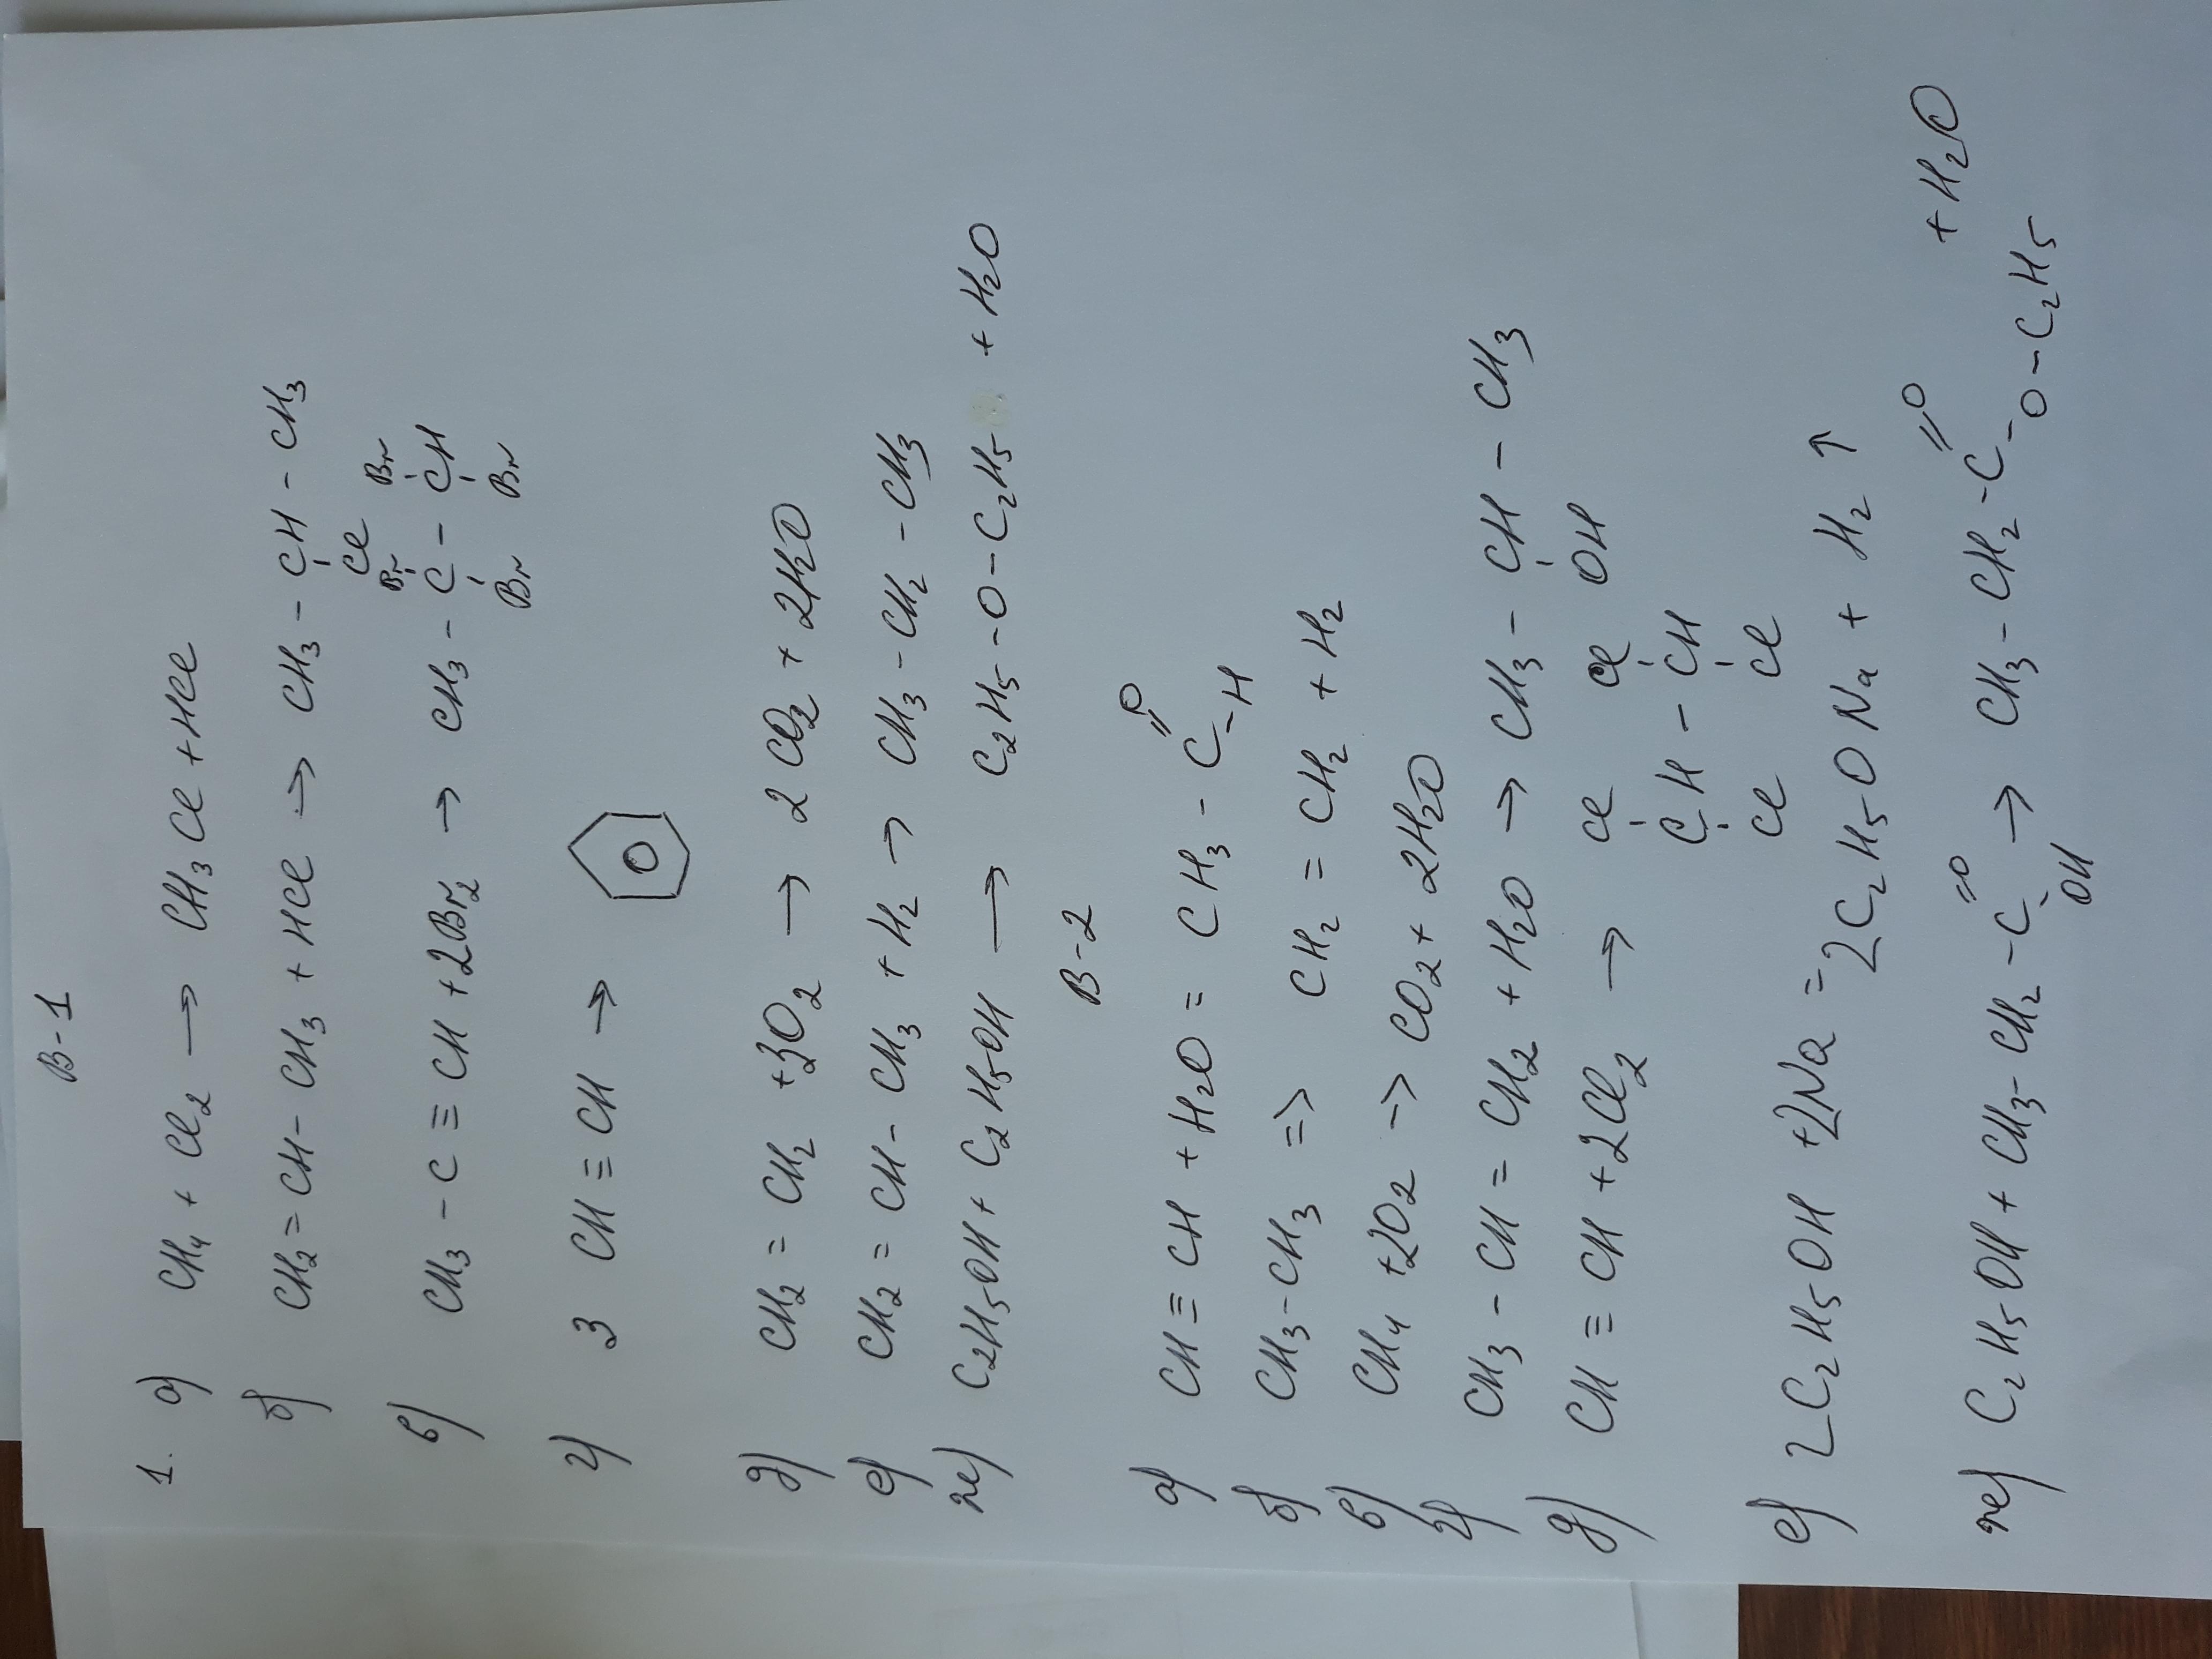 В-1
1. а) CH₄ + Cl₂ → CH₃Cl + HCl
б) CH₂ = CH - CH₃ + HCl → CH₃ - CH - CH₃
Cl
Br Br
в) CH₃ - C ≡ CH + 2Br₂ → CH₃ - C - CH
Br Br
г) 3 CH ≡ CH →
д) CH₂ = CH₂ + 3O₂ → 2CO₂ + 2H₂O
е) CH₂ = CH - CH₃ + H₂ → CH₃ - CH₂ - CH₃
ж) C₂H₅OH + C₂H₅OH → C₂H₅ - O - C₂H₅ + H₂O
В-2
O
а) CH ≡ CH + H₂O = CH₃ - C
- H
б) CH₃ - CH₃ => CH₂ = CH₂ + H₂
в) CH₄ + 2O₂ → CO₂ + 2H₂O
г) CH₃ - CH = CH₂ + H₂O → CH₃ - CH - CH₃
OH
Cl Cl
д) CH ≡ CH + 2Cl₂ → CH - CH
Cl Cl
е) 2C₂H₅OH + 2Na = 2C₂H₅ONa + H₂ ↑
=O =O + H₂O
ж) C₂H₅OH + CH₃ - CH₂ - C → CH₃ - CH₂ - C
OH - O - C₂H₅